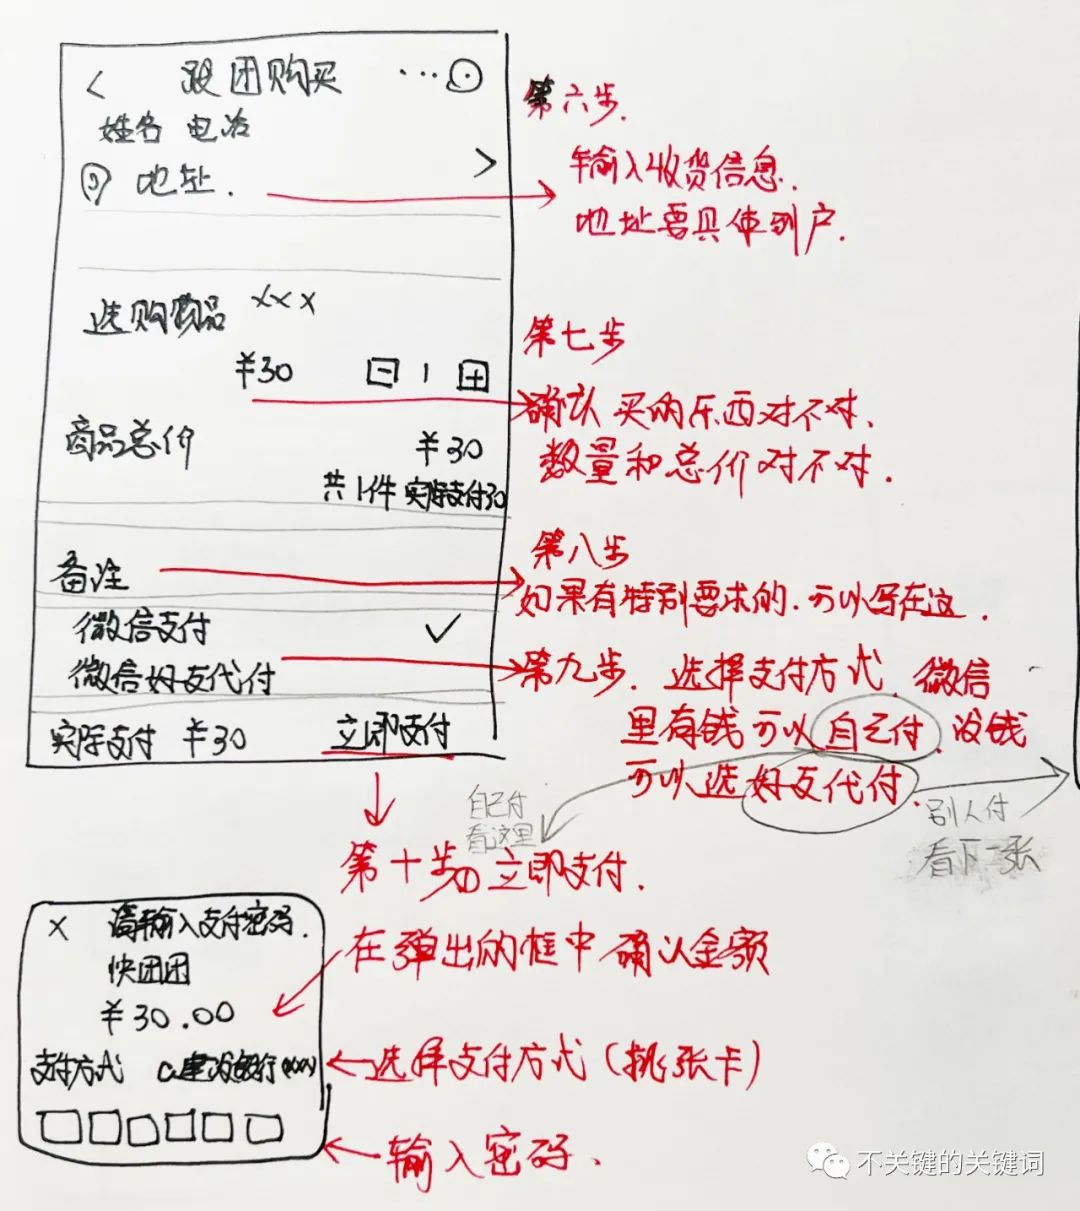 < 跟团购买 ...
姓名 电话
地址.
>
第六步.
输入收货信息.
地址要具体到户.
选购商品 xxx
¥30 - 1 +
商品总价 ¥30
共1件 实际支付30
第七步
确认买的东西对不对、
数量和总价对不对.
备注
第八步
如果有特别要求的.可以写在这.
微信支付 ✓
微信好友代付
第九步. 选择支付方式、微信
里有钱可以自己付、没钱
可以选好友代付.
实际支付 ¥30 立即支付
自己付
看这里
别人付
看下一张
第十步① 立即支付.
在弹出的框中确认金额
x 请输入支付密码.
快团团
¥30.00
支付方式 建设银行(xxx)
选择支付方式(挑张卡)
输入密码.
不关键的关键词